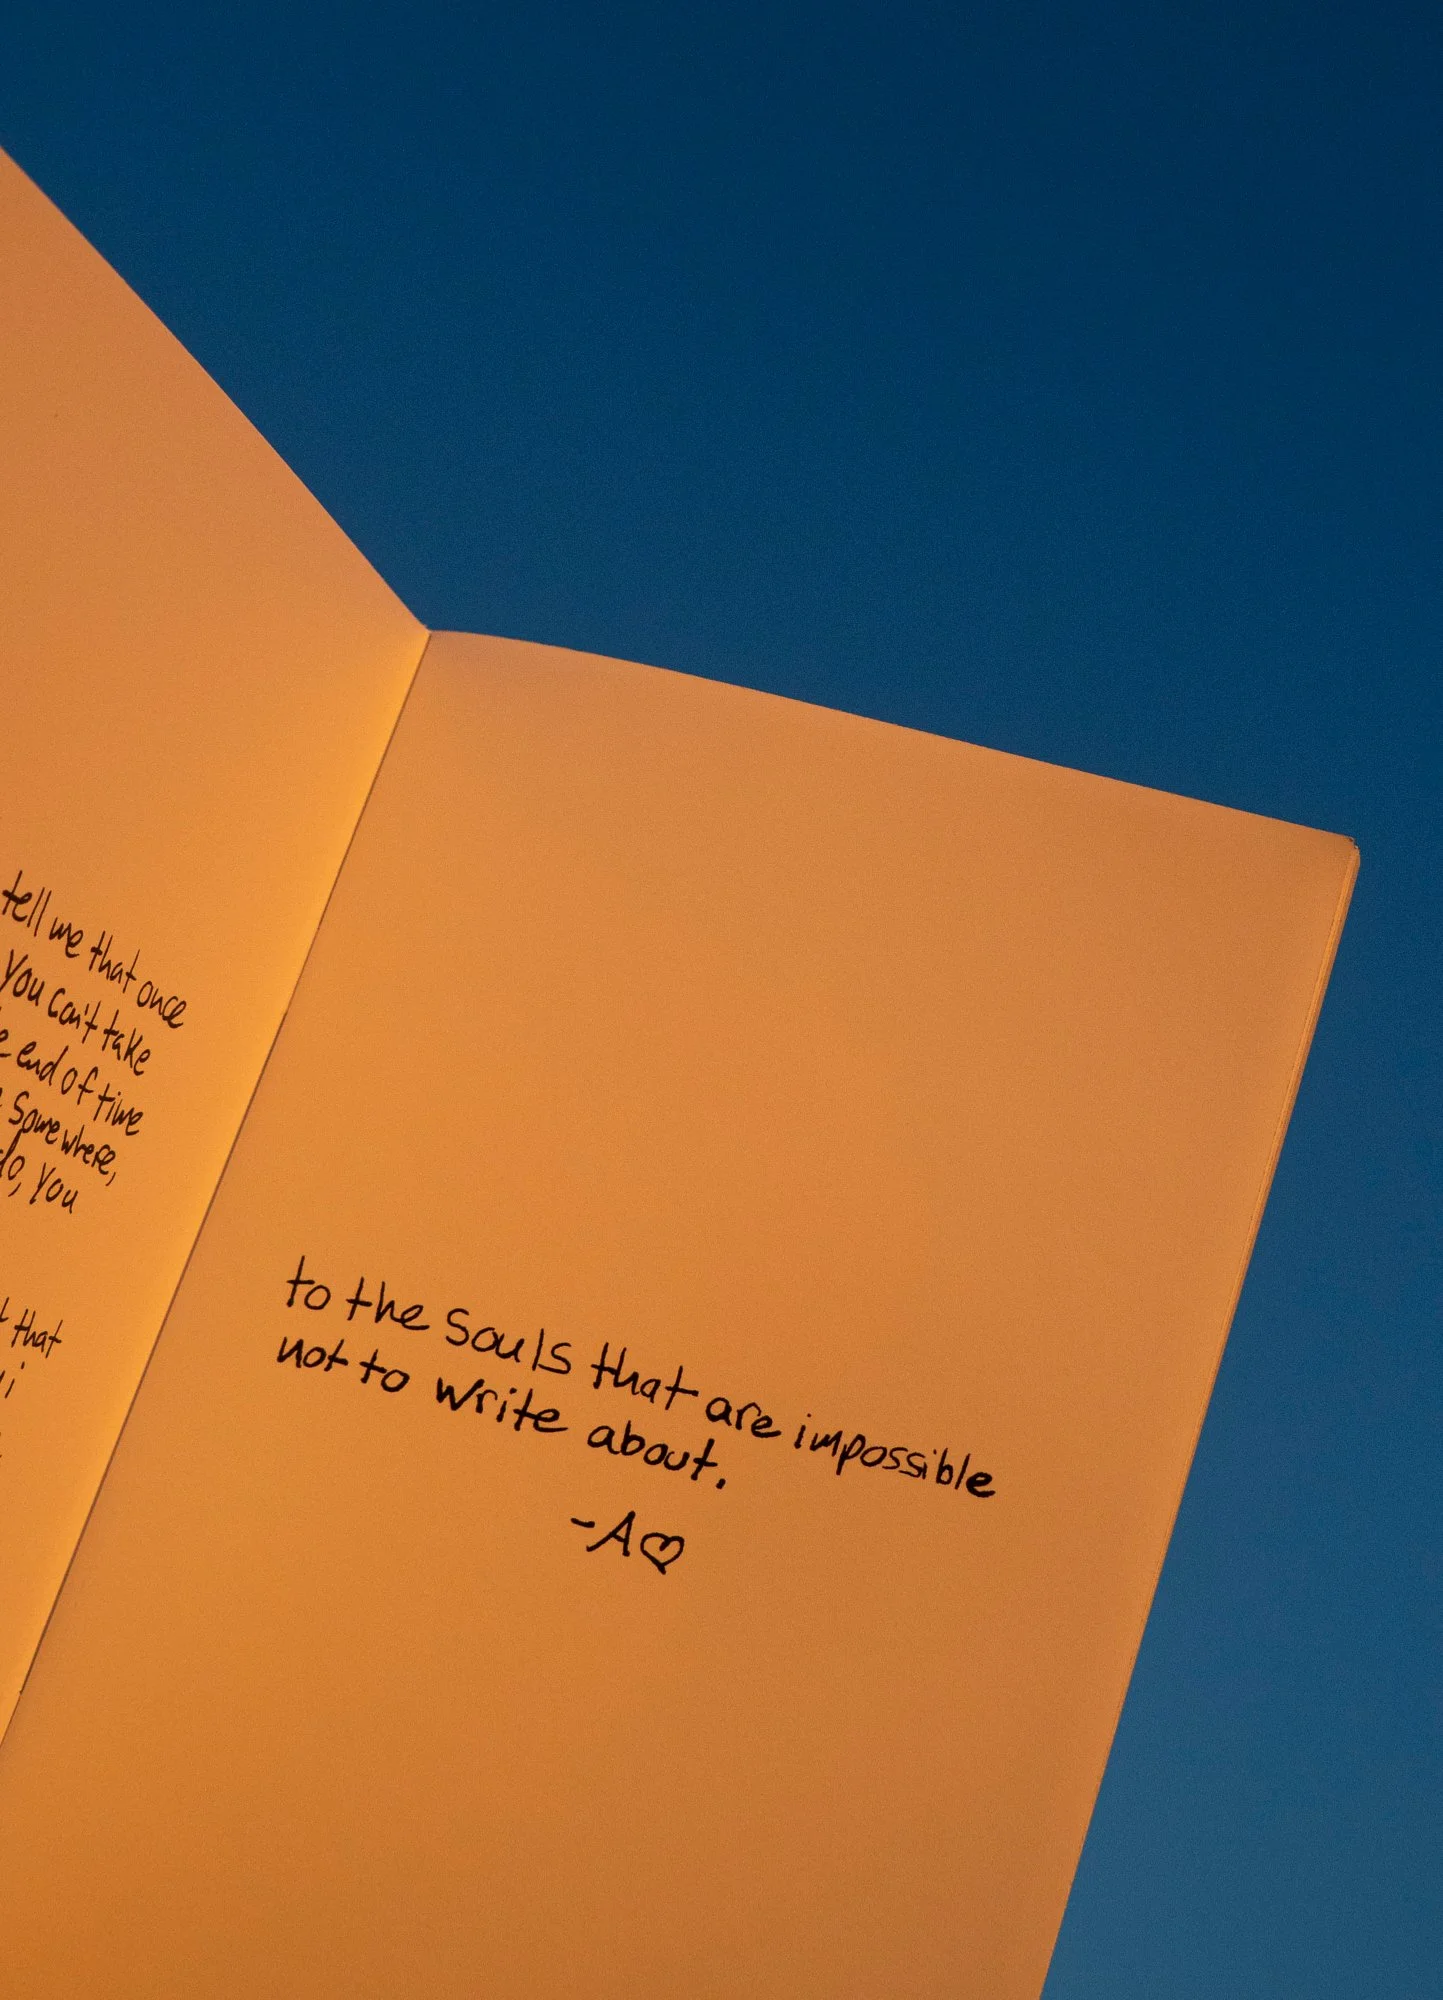 tell me that once
you can't take
end of time
somewhere,
do, you
that
i
to the souls that are impossible
not to write about.
-A♡